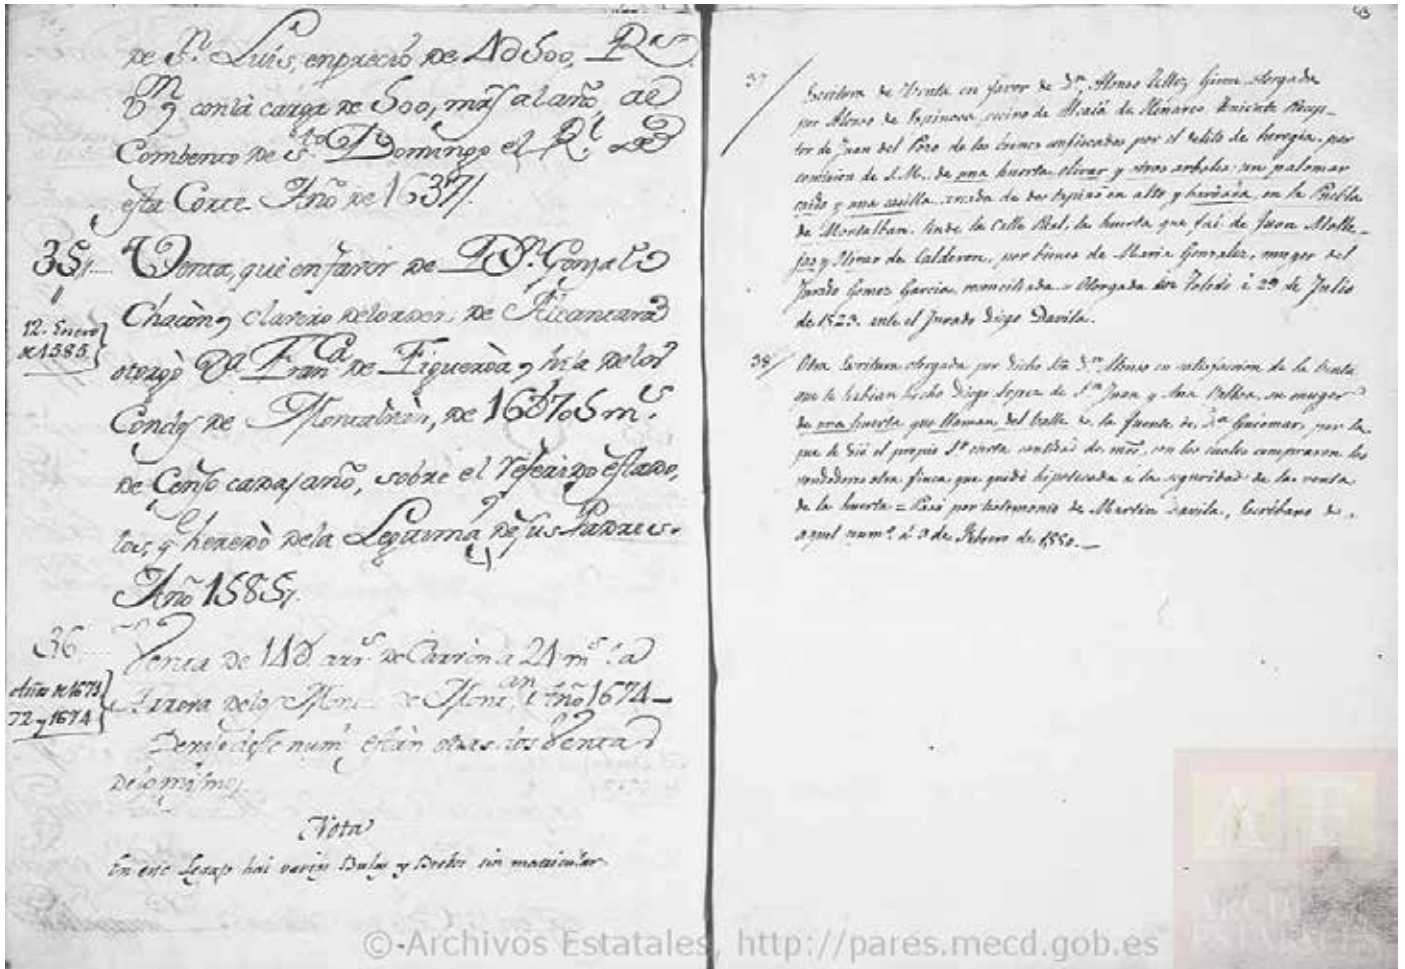 de Sn. Luis, en precio de 4@500, Rs
Vn, con la carga de 500, mrs al año, al
Combento de Sto. Domingo el Rl. de
esta Corte. Año de 1637/.
35/.. Venta, que en favor de Dn. Gonzalo
12. Enero
de 1585.
Chacòn, clavero del orden, de Alcantara
otorgò Da. Franca. de Figueròa, hija de los
Condes de Montalvàn, de de ms.
de Censo cada año, sobre el referido estado,
los, q heredò de la Legitima, de sus Padres.
Año 1585/.
36
Años de 1673
72 y 1674
Venta de 14@ arrs. de Carvòn a 24 ms. la
Arrova de los Montes de Montan. Año 1674-
Dentro de este numo. estàn otras dos Ventas
de lo mismo,
Nota
En este Legajo hai varias Bulas y Breves sin matricular.
37/ Escritura de Venta en favor de Dn. Alonso Tellez Giron otorgada
por Alonso de Espinosa, vecino de Alcalá de Henares Teniente Recep-
tor de Juan del Pozo de los bienes confiscados por el delito de heregia, por
comision de S.M., de una huerta, olivar y otros arboles, un palomar
caido y una casilla, cercada de dos tapias en alto y en la Puebla
de Montalban, linde la Calle Real, la huerta que fué de Juan Molle-
jas y Olivar de Calderon, por bienes de Maria Gonzalez, muger del
Jurado Gomez Garcia, reconciliada = Otorgada en Toledo á 29 de Julio
de 1523. ante el Jurado Diego Davila.
38/ Otra Escritura otorgada por dicho Sr. Dn. Alonso en satisfaccion de la Venta
que le habian hecho Diego Lopez de Sn. Juan y Ana su muger
de una huerta que llaman del Valle de la fuente de Da. Guiomar, por la
que le dió el propio Sr. cierta cantidad de mrs. con los cuales compraron los
vendedores otra finca que quedó hipotecada a la seguridad de la venta
de la huerta = Pasó por testimonio de Martin Davila, Escribano de
aquel numo. á 9 de Febrero de 1550.
©-Archivos Estatales, http://pares.mecd.gob.es